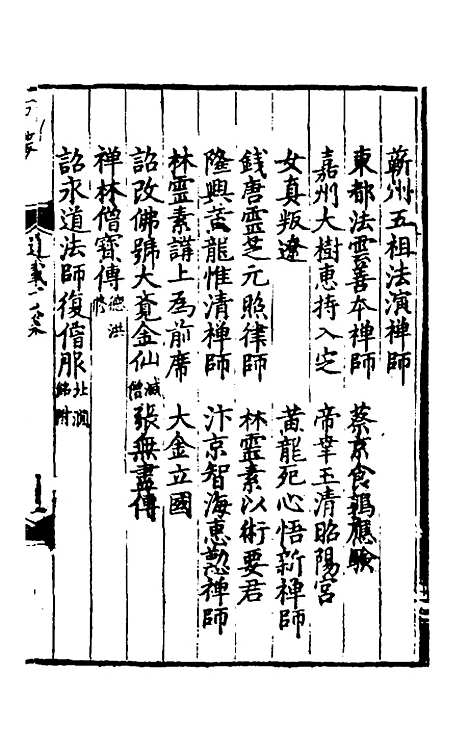 蘄州五祖法演禅師
東都法雲善本禅師　蔡京食鶉應驗
嘉州大樹惠持入定　帝幸玉清昭陽宮
女真叛遼　黄龍死心悟新禅師
錢唐靈芝元照律師　林靈素以術要君
隆興黄龍惟清禅師　汴京智海惠懃禅師
林靈素講上為前席　大金立國
詔改佛號大覺金仙　張無盡傳
禅林僧寳傳德洪
詔永道法師復僧服